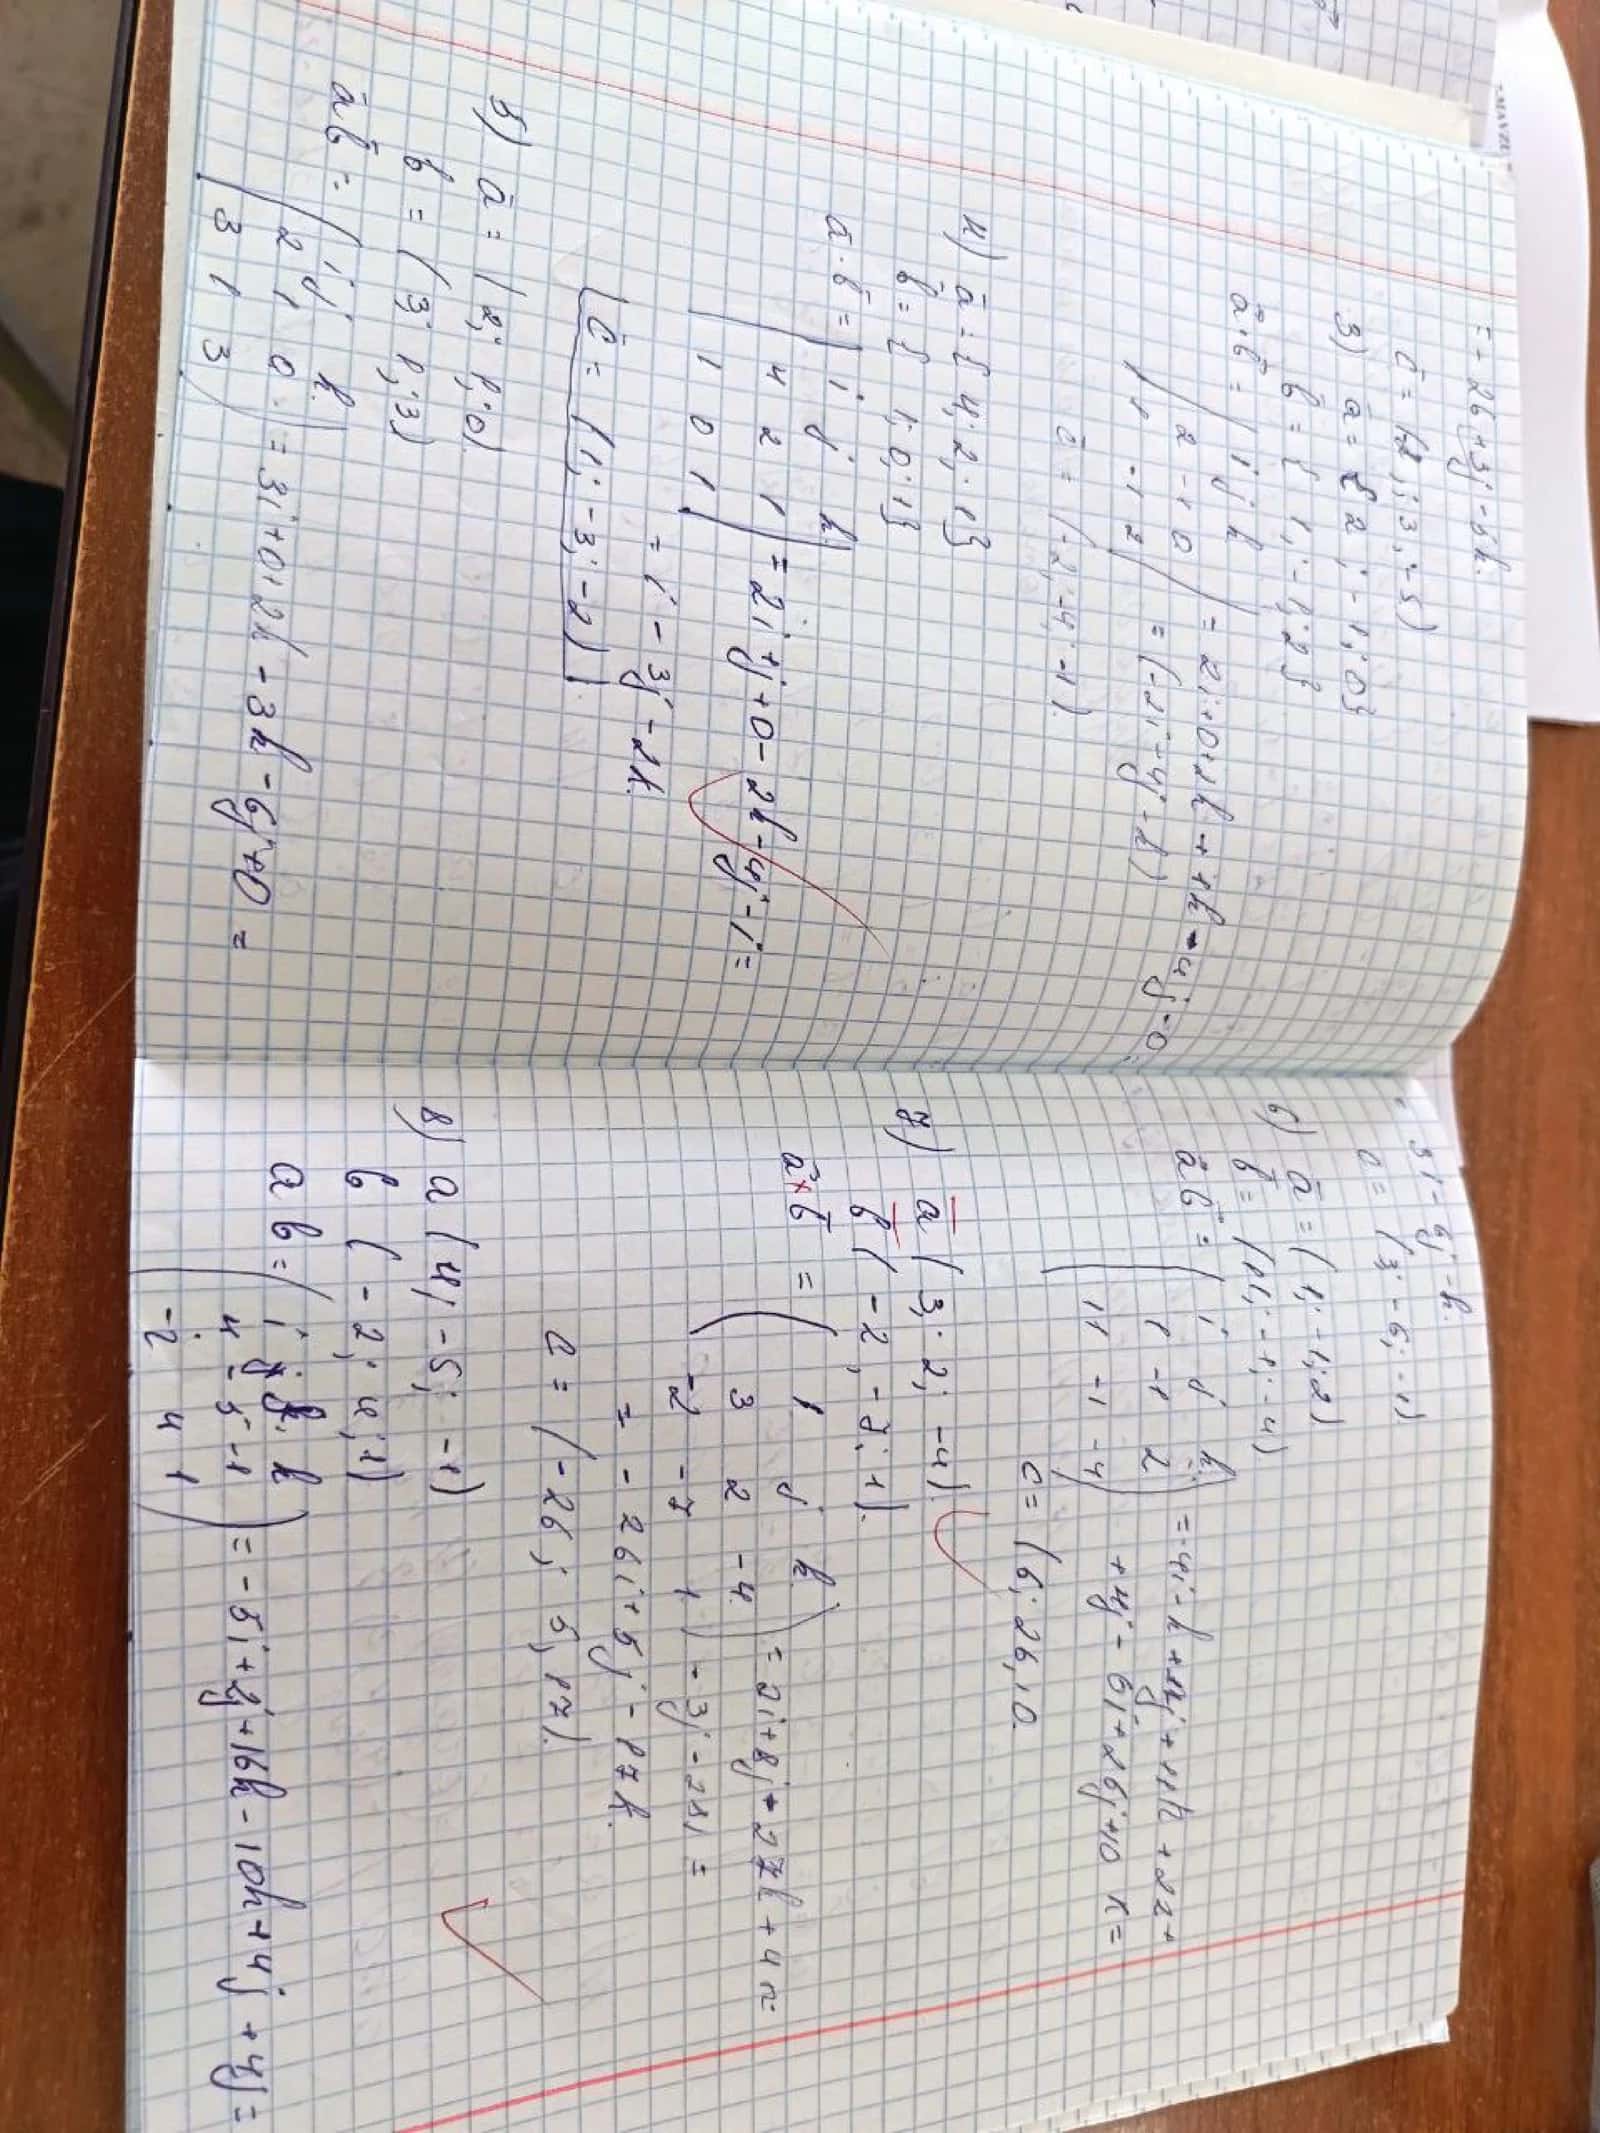 = - 26 + 3j - 5k.
3) ā = { 2 ; - 1 ; 0}
b̄ = { 1 ; - 1 ; 2 }
ā·b̄ =
i j k
2 -1 0
1 -1 2
= (-2i - 4j - k)
c̄ = (-2; -4; -1).
4) ā = { 4; 2; 1}
b̄ = { 1; 0; 1}
ā·b̄ =
i j k
4 2 1
1 0 1
= 2i + j + 0 - 2k - 4j - i =
= i - 3j - 2k.
c̄ = (1; -3; -2)
5) ā = (2; 1; 0).
b = (3; 1; 3)
ā b̄ =
i j k
2 1 0
3 1 3
= 3i + 0 + 2k - 3k - 6j + 0 =
= 3i - 6j - k.
c = (3; -6; -1)
6) ā = (1; -1; 2)
b̄ = (11; -1; -4)
ā b̄ =
i j k
1 -1 2
11 -1 -4
+ 4j - 6i + 26j + 10 k =
c = (6; 26; 10
7) ā (3; 2; -4).
b̄ (-2, -7; 1).
ā × b̄ =
i j k
3 2 -4
-2 -7 1
- 3j - 28i =
= - 26i + 5j - 17k.
c = (-26; 5; 17).
8) a (4; -5; -1)
b (-2; 4; 1)
a b =
i j k
4 -5 -1
-2 4 1
= - 5i + 2j + 16k - 10k + 4j + 4j =